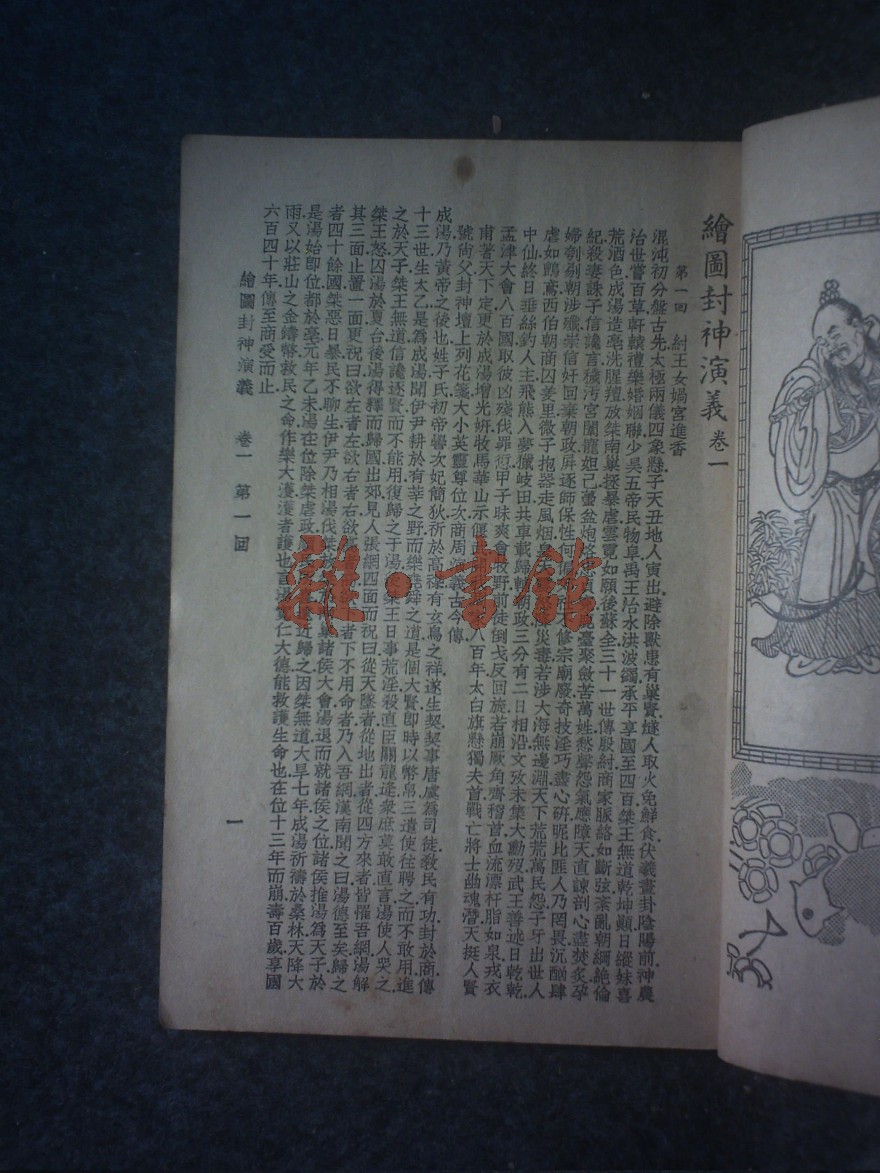 繪圖封神演義 卷一
第一回 紂王女媧宮進香
混沌初分盤古先太極兩儀四象懸子天丑地人寅出避除獸患有巢賢燧人取火免鮮食伏羲畫卦陰陽前神農
治世嘗百草軒轅禮樂婚姻聯少昊五帝民物阜禹王治水洪波蠲承平享國至四百桀王無道乾坤顛日縱妹喜
荒酒色成湯造亳洗腥羶放桀南巢拯暴虐雲霓如願後蘇全三十一世傳殷紂商家脈絡如斷弦紊亂朝綱絕倫
紀殺妻誅子信讒言穢污宮闈寵妲己蠆盆炮烙忠貞臺聚斂苦萬姓愁聲怨氣應障天直諫剖心盡焚炙孕
婦刳剔朝涉殲崇信奸回棄朝政屏逐師保性何修宗廟廢奇技淫巧盡心研昵比匪人乃罔畏沉酗肆
虐如鸇鳶西伯朝商囚羑里微子抱器走風烟皇天災毒若涉大海無邊淵天下荒荒萬民怨子牙出世人
中仙終日垂絲釣人主飛熊入夢獵岐田共車載歸輔朝政三分有二日相沿文攷未集大勳歿武王善述日乾乾
孟津大會八百國取彼凶殘伐罪愆甲子昧爽會牧野前徒倒戈反回旋若崩厥角齊稽首血流漂杵脂如泉戎衣
甫著天下定更於成湯增光妍牧馬華山示偃武八百年太白旗懸獨夫首戰亡將士幽魂潛天挺人賢
號尙父封神壇上列花箋大小英靈尊位次商周演義古今傳
成湯乃黃帝之後也姓子氏初帝嚳次妃簡狄祈於高禖有玄鳥之祥遂生契契事唐虞爲司徒敎民有功封於商傳
十三世生太乙是爲成湯聞伊尹耕於有莘之野而樂堯舜之道是個大賢卽時以幣帛三遣使往聘之而不敢用進
之於天子桀王無道信讒逐賢而不能用復歸之于湯桀王日事荒淫殺直臣關龍逄衆庶莫敢直言湯使人哭之
桀王怒囚湯於夏台後湯得釋而歸國出郊見人張網四面而祝曰從天墜者從地出者從四方來者皆罹吾網湯解
其三面止置一面更祝曰欲左者左欲右者右欲者下不用命者乃入吾網漢南聞之曰湯德至矣歸之
者四十餘國桀惡日暴民不聊生伊尹乃相湯伐桀放諸侯大會湯退而就諸侯之位諸侯推湯爲天子於
是湯始卽位都於亳元年乙未湯在位除桀虐政近歸之因桀無道大旱七年成湯祈禱於桑林天降大
雨又以莊山之金鑄幣救民之命作樂大濩濩者護也言湯寬仁大德能救護生命也在位十三年而崩壽百歲享國
六百四十年傳至商受而止
繪圖封神演義 卷一 第一回
一
雜·書館